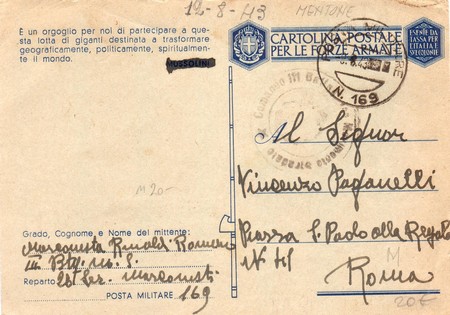 12-8-43
MENTONE
È un orgoglio per noi di partecipare a que-
sta lotta di giganti destinata a trasformare
geograficamente, politicamente, spiritualmen-
te il mondo.
MUSSOLINI
CARTOLINA POSTALE
PER LE FORZE ARMATE
ESENTE DA
TASSA PER
L'ITALIA E
SUE COLONIE
N. 169
Comando III
Al Signor
Vincenzo Paganelli
Piazza S. Paolo alla Regola
N 41
Roma
M 20-
Grado, Cognome e Nome del mittente:
Marconista Rinaldi Romano
III
Reparto
Marconisti
POSTA MILITARE 169
M
20€